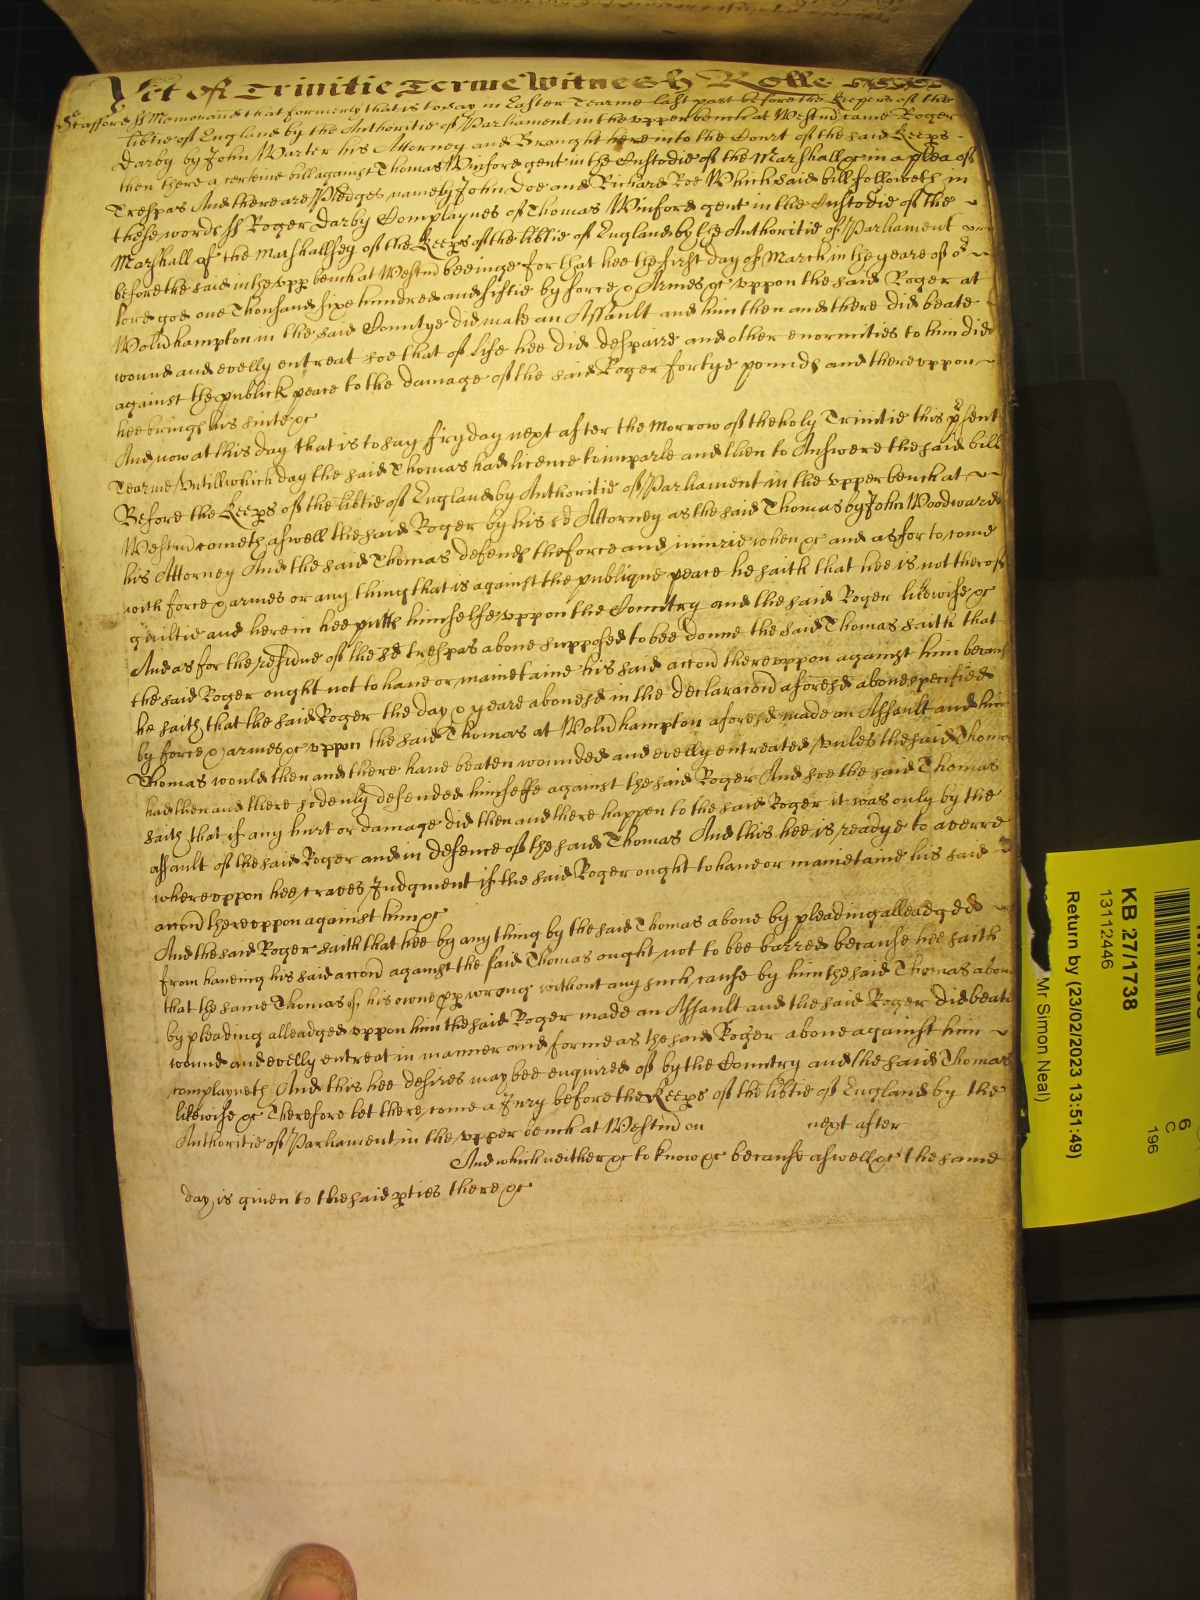 Yet of Trinitie Terme Witnesh Rolle
Stafford ss Memorand that formerly that is to say in Easter Tearme last past before the Keepers of the
libtie of England by the Authoritie of Parliament in the upper bench at Westmr came Roger
Darby by John Warter his Attorney and Brought here into the Court of the said Keeps
then there a certeine bill against Thomas Winford gent in the Custodie of the Marshall &c in a plea of
Trespas And there are Pledges namely John Doe and Richard Roe Which said bill followeth in
these words ss Roger Darby Complaynes of Thomas Winford gent in the Custodie of the
Marshall of the Marshallsey of the Keeps of the libtie of England by the Authoritie of Parliament
before the said in the upp bench at Westmr beeinge for that hee the first day of March in the yeare of or
lord god one Thousand sixe hundred and fiftie by force & Armes &c uppon the said Roger at
Wolurhampton in the said Countye did make an Assault and him then and there did beate
wound and evelly entreat soe that of life hee did despaire and other enormities to him did
against the publick peace to the damage of the said Roger fortye pounds and thereuppon
hee brings his suite &c
And now at this day that is to say fryday next after the Morrow of the holy Trinitie this psent
Tearme Untill which day the said Thomas had licence to imparle and then to Answere the said bill
Before the Keeps of the libtie of England by Authoritie of Parliament in the upper bench at
Westmr cometh aswell the said Roger by his sd Attorney as the said Thomas by John Woodward
his Attorney And the said Thomas defends the force and iniurie when &c and as for to come
with force & armes or any thing that is against the publique peace he saith that hee is not thereof
guiltie and herein hee putts himselfe uppon the Countrey and the said Roger likewise &c
And as for the residue of the sd trespas aboue supposed to bee donne the said Thomas saith that
the said Roger ought not to haue or mainetaine his said accon thereuppon against him because
he saith that the said Roger the day & yeare abouesd in the declaracon aforesd aboue specified
by force & armes &c uppon the said Thomas at Wolurhampton aforesd made an Assault and him
Thomas would then and there haue beaten wounded and evelly entreated Unles the said Thomas
had then and there sodenly defended himselfe against the said Roger And soe the said Thomas
saith that if any hurt or damage did then and there happen to the said Roger it was only by the
assault of the said Roger and in defence of the said Thomas And this hee is readye to averre
whereuppon hee craves Judgment if the said Roger ought to haue or mainetaine his said
accon thereuppon against him &c
And the said Roger saith that hee by any thing by the said Thomas aboue by pleading alleadged
from haueing his said accon against the said Thomas ought not to bee barred because hee saith
that the same Thomas of his owne pp wrong without any such cause by him the said Thomas aboue
by pleading alleadged uppon him the said Roger made an Assault and the said Roger did beate
wound and evelly entreat in manner and forme as the said Roger aboue against him
complayneth And this hee desires may bee enquired of by the Country and the said Thomas
likewise &c Therefore let there come a Jury before the Keeps of the libtie of England by the
Authoritie of Parliament in the upper bench at Westmr on next after
And which neither &c to know &c because aswell &c the same
day is given to the said pties there &c
KB 27/1738
13112446
Return by (23/02/2023 13:51:49)
Mr Simon Neal)
6
C
196